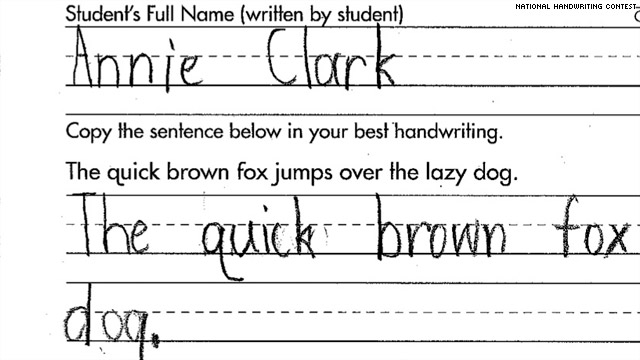 NATIONAL HANDWRITING CONTEST
Student's Full Name (written by student)
Annie Clark
Copy the sentence below in your best handwriting.
The quick brown fox jumps over the lazy dog.
The quick brown fox
dog.